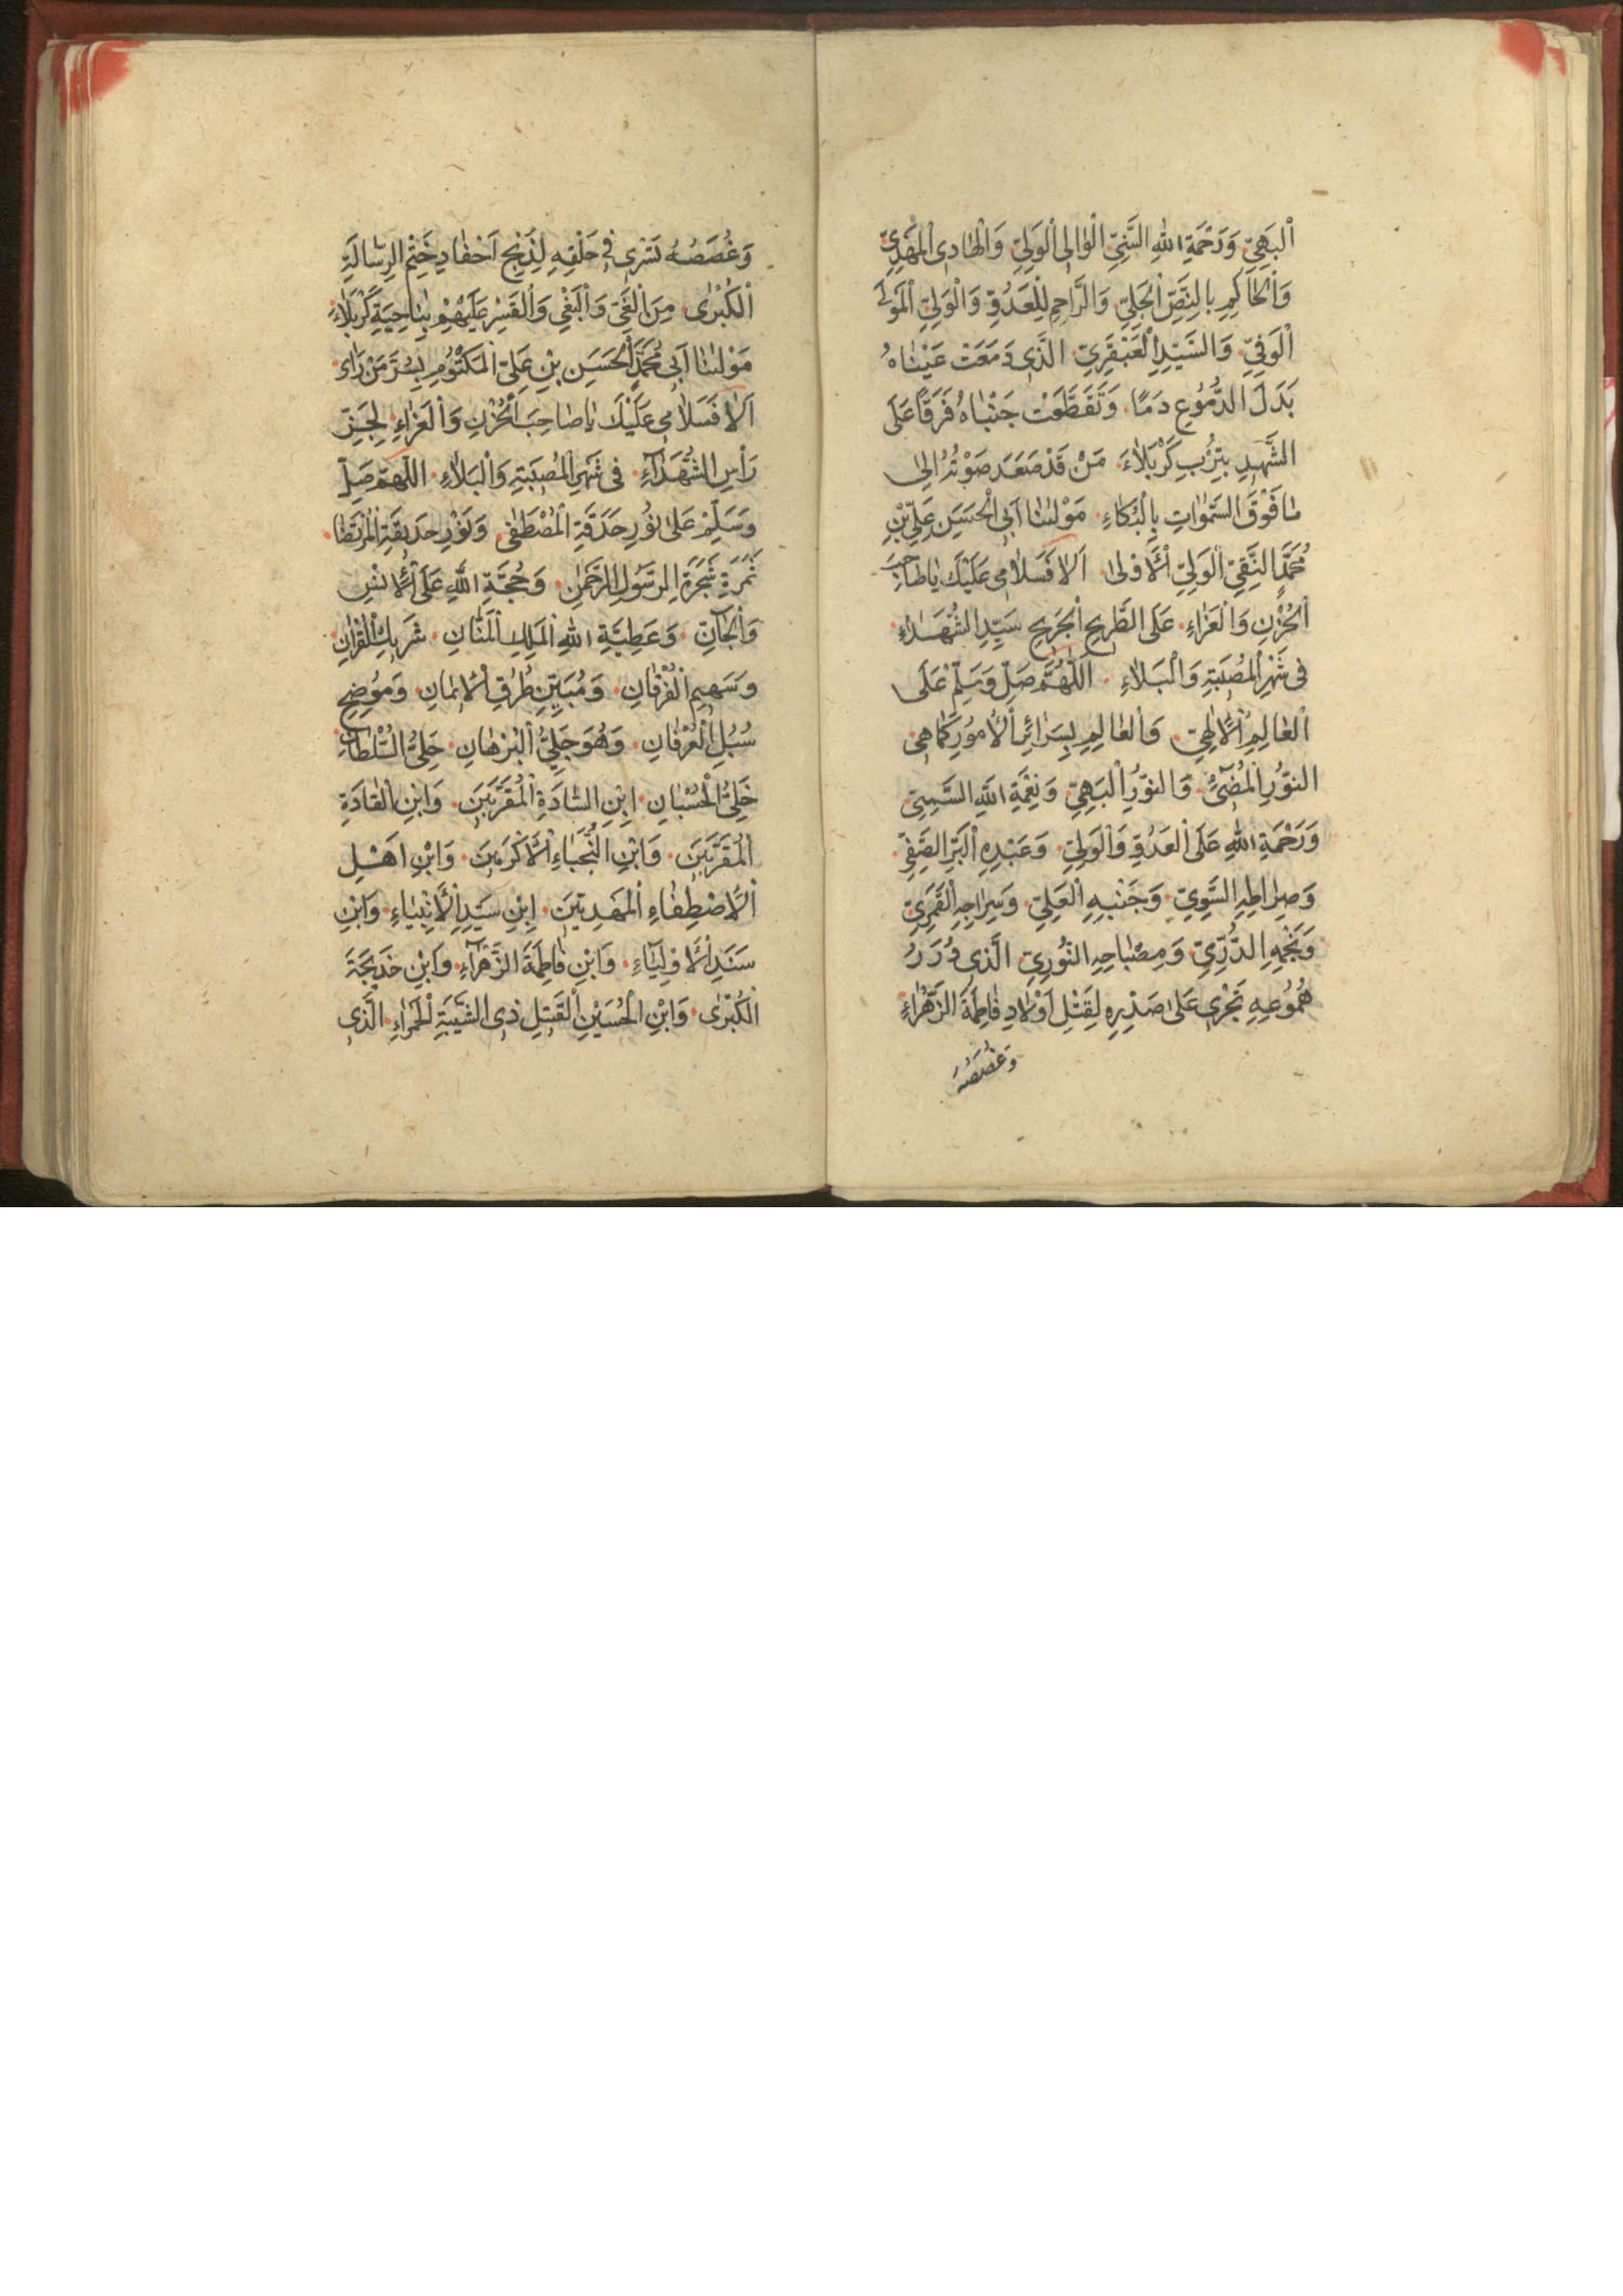 اَلْبَهِيِّ وَرَحْمَةِ اللهِ السَّنِيِّ الْوٰالِى الْوَلِيِّ وَالْهٰادِى الْمَهْدِيِّ
وَالْحٰاكِمِ بِالنَّصِّ الْجَلِيِّ وَالرَّاحِمِ لِلْعَدُوِّ وَالْوَلِيِّ الْمَوْلَى
الْوَفِيِّ وَالسَّيِّدِ الْعَبْقَرِيِّ الَّذِى دَمَعَتْ عَيْنٰاهُ
بَدَلَ الدُّمُوْعِ دَمًا وَتَقَطَّعَتْ جَنْبٰاهُ فَرَقًا عَلَى
الشَّهِيدِ بِتُرْبِ كَرْبَلٰاءَ مَنْ قَدْ صَعَدَ صَوْتُهُ اِلٰى
مٰا فَوْقَ السَّمٰوَاتِ بِالْبُكَاءِ مَوْلٰنٰا اَبِى الْحَسَنِ عَلِيِّ بْنِ
مُحَمَّدٍ النَّقِيِّ الْوَلِيِّ الْاَوْلٰى اَلَا فَسَلٰامِى عَلَيْكَ يٰا صٰاحِبَ
الْحُزْنِ وَالْعَزٰاءِ عَلَى الطَّرِيحِ الْجَرِيحِ سَيِّدِ الشُّهَدَاءِ
فِى شَهْرِ الْمُصِيبَةِ وَالْبَلٰاءِ اَللّٰهُمَّ صَلِّ وَسَلِّمْ عَلَى
الْعٰالِمِ الْاِلٰهِيِّ وَالْعٰالِمِ بِسَرٰائِرِ الْاُمُوْرِ كَمٰا هِىَ
النُّوْرِ الْمُضِيْءِ وَالنُّوْرِ الْبَهِيِّ وَنِعْمَةِ اللهِ السَّمِيِّ
وَرَحْمَةِ اللهِ عَلَى الْعَدُوِّ وَالْوَلِيِّ وَعَبْدِهِ الْبَرِّ الصَّفِيِّ
وَصِرٰاطِهِ السَّوِيِّ وَجَنْبِهِ الْعَلِيِّ وَسِرٰاجِهِ الْقَمَرِيِّ
وَنَجْمِهِ الدُّرِّيِّ وَمِصْبٰاحِهِ النُّوْرِيِّ الَّذِى دُرَرُ
هُمُوْعِهِ تَجْرِى عَلٰى صَدْرِهِ لِقَتْلِ اَوْلٰادِ فٰاطِمَةَ الزَّهْرٰاءِ
وَغُصَصُهُ
وَغُصَصُهُ تَسْرِى فِى حَلْقِهِ لِذَبْحِ اَحْفٰادِ خَتْمِ الرِّسٰالَةِ
الْكُبْرٰى مِنَ الْغَيِّ وَالْبَغْيِ وَالْقَسْرِ عَلَيْهِمْ بِنٰاحِيَةِ كَرْبَلٰاءَ
مَوْلٰنٰا اَبِى مُحَمَّدٍ الْحَسَنِ بْنِ عَلِيِّ الْمَكْتُوْمِ بِسُرَّ مَنْ رَاٰى
اَلَا فَسَلٰامِى عَلَيْكَ يٰا صٰاحِبَ الْحُزْنِ وَالْعَزٰاءِ لِحَزِّ
رَأْسِ الشُّهَدَاءِ فِى شَهْرِ الْمُصِيبَةِ وَالْبَلٰاءِ اَللّٰهُمَّ صَلِّ
وَسَلِّمْ عَلٰى نُوْرِ حَدَقَةِ الْمُصْطَفٰى وَنَوْرِ حَدِيقَةِ الْمُرْتَضٰى
ثَمَرَةِ شَجَرَةِ الرَّسُوْلِ الرَّحْمٰنِ وَحُجَّةِ اللهِ عَلَى الْاِنْسِ
وَالْجَآنِّ وَعَطِيَّةِ اللهِ الْمَلِكِ الْمَنَّانِ شَرِيكِ الْقُرْاٰنِ
وَسَهِيمِ الْفُرْقَانِ وَمُبَيِّنِ طُرُقِ الْاِيمَانِ وَمُوْضِحِ
سُبُلِ الْعُرْفَانِ وَهُوَ جَلِيُّ الْبُرْهَانِ جَلِيُّ السُّلْطَانِ
خَلِيُّ الْحُسْبَانِ اِبْنِ السَّادَةِ الْمُقَرَّبِينَ وَابْنِ الْقٰادَةِ
الْمُقَرَّبِينَ وَابْنِ النُّجَبَاءِ الْاَكْرَمِينَ وَابْنِ اَهْلِ
الْاِصْطِفَاءِ الْمَهْدِيِّينَ اِبْنِ سَيِّدِ الْاَنْبِيَاءِ وَابْنِ
سَنَدِ الْاَوْلِيَاءِ وَابْنِ فٰاطِمَةَ الزَّهْرَآءِ وَابْنِ خَدِيجَةَ
الْكُبْرٰى وَابْنِ الْحُسَيْنِ الْقَتِيلِ ذِى الشَّيْبَةِ الْحَمْرَاءِ الَّذِى